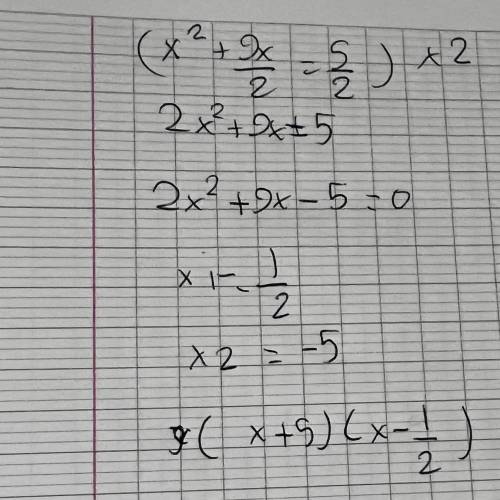 (x² + 9x/2 = 5/2) × 2
2x² + 9x = 5
2x² + 9x - 5 = 0
x1 = 1/2
x2 = -5
(x+5)(x - 1/2)